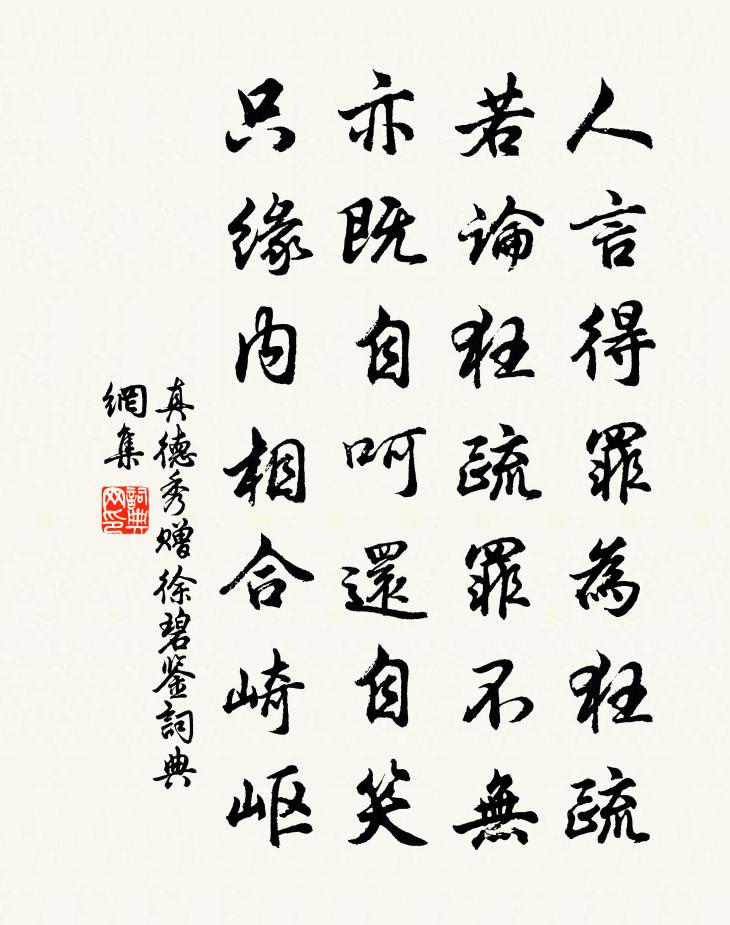 人言得罪為狂疏
若論狂疏罪不無
亦既自呵還自笑
只緣内相合崎岖
真德秀赠徐碧鉴詞典
網集
詞典網印